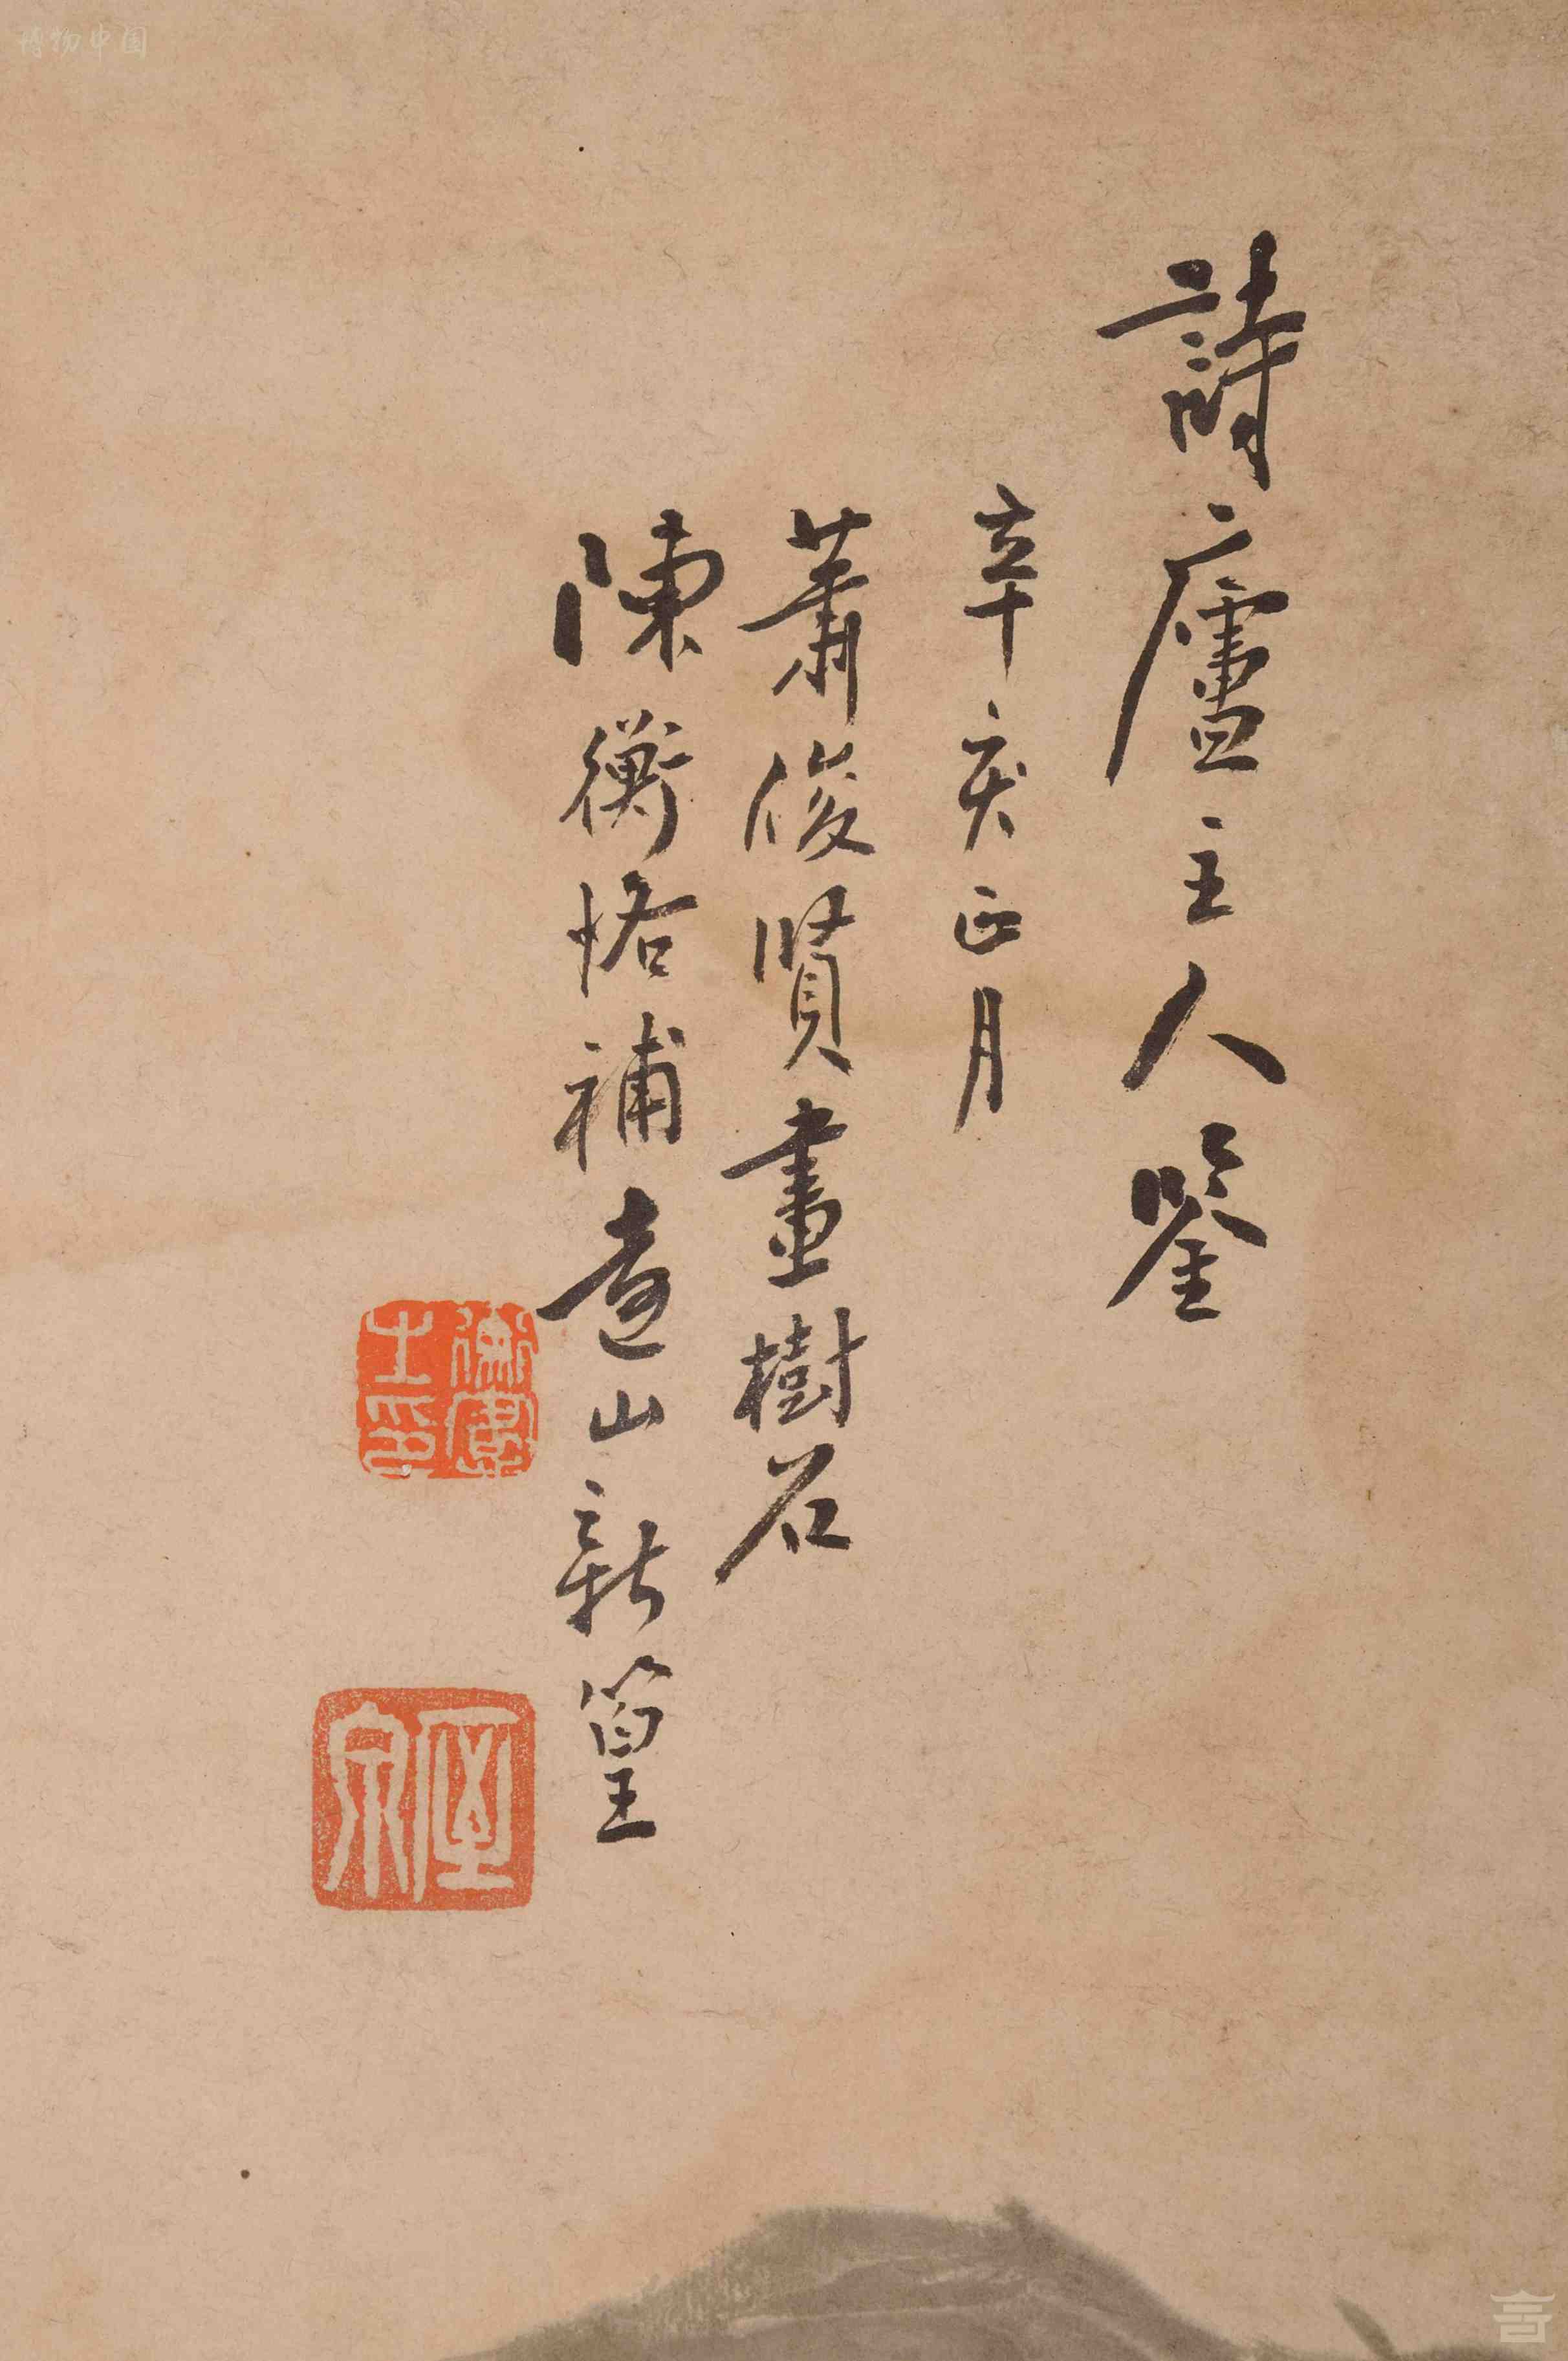 詩廬主人鑒
辛亥正月
蕭俊賢畫樹石
陳衡恪補遠山新篁
博物中国